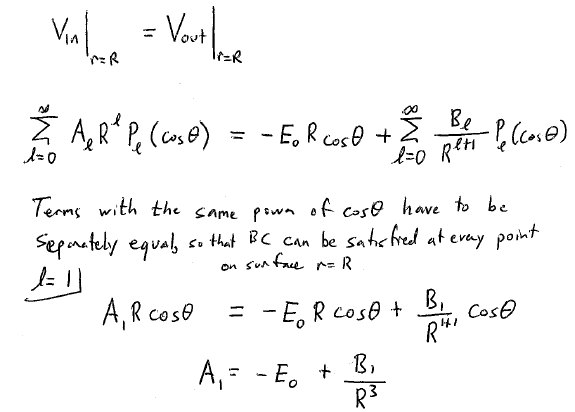 V_in |_{r=R} = V_out |_{r=R}
∑_{l=0}^{∞} A_l R^l P_l (cosθ) = -E_0 R cosθ + ∑_{l=0}^{∞} B_l / R^{l+1} P_l (cosθ)
Terms with the same power of cosθ have to be
separately equal, so that BC can be satisfied at every point
on surface r=R
l=1
A_1 R cosθ = -E_0 R cosθ + B_1 / R^{1+1} cosθ
A_1 = -E_0 + B_1 / R^3